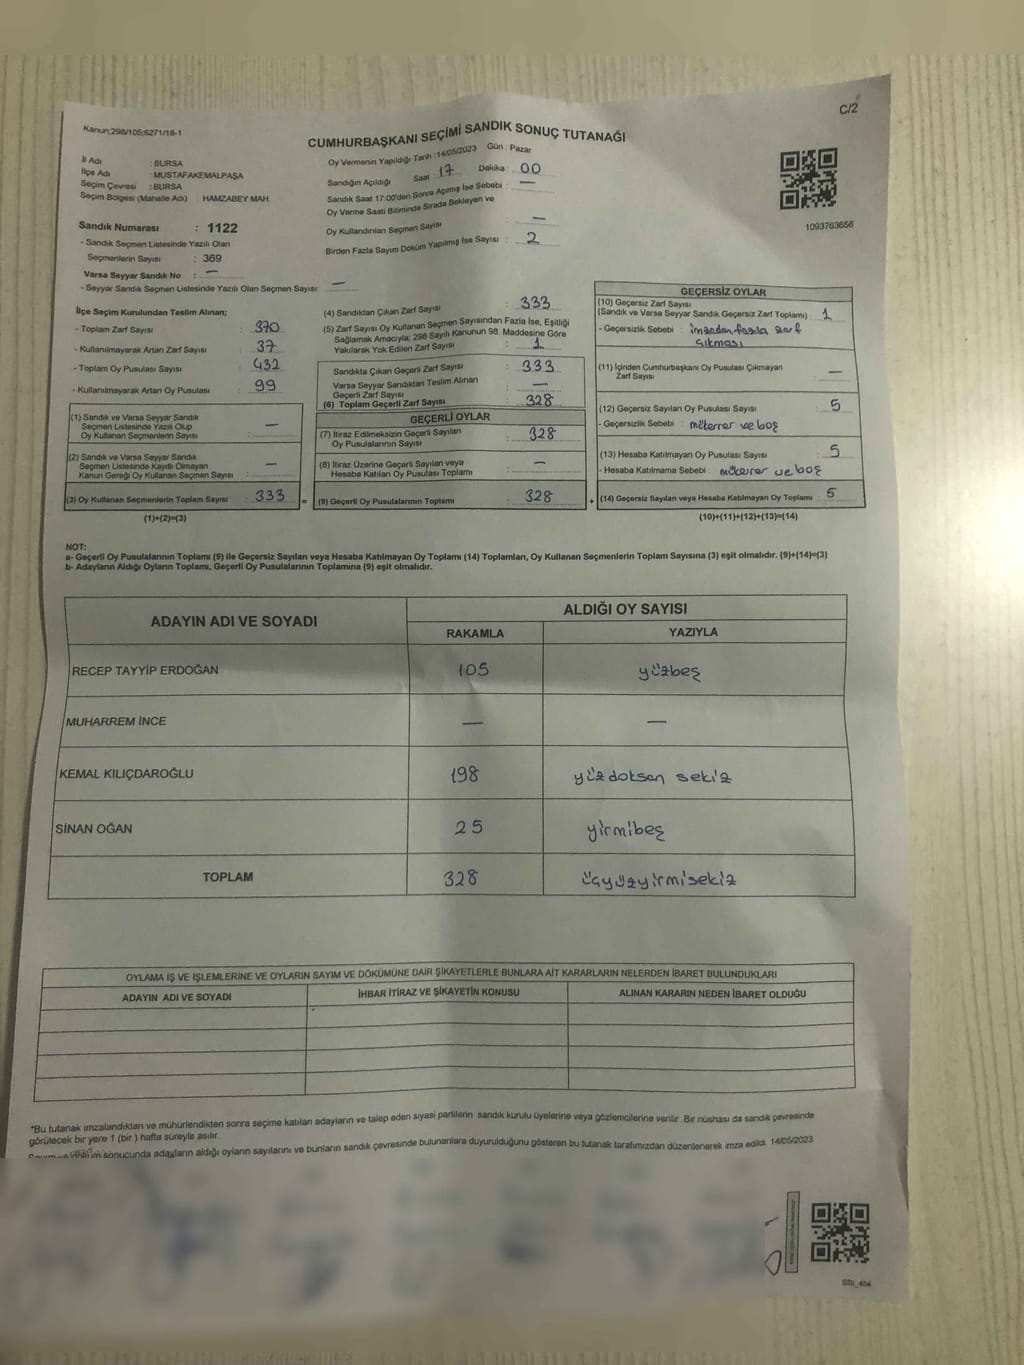 C/2
Kanun:298/105;6271/18-1
CUMHURBAŞKANI SEÇİMİ SANDIK SONUÇ TUTANAĞI
İl Adı : BURSA
İlçe Adı : MUSTAFAKEMALPAŞA
Seçim Çevresi : BURSA
Seçim Bölgesi (Mahalle Adı) : HAMZABEY MAH.
Oy Vermenin Yapıldığı Tarih :14/05/2023 Gün : Pazar
Sandığın Açıldığı Saat : 17 Dakika : 00
Sandık Saat 17:00'den Sonra Açımış İse Sebebi : —
Oy Verme Saati Bitiminde Sırada Bekleyen ve
Oy Kullandırılan Seçmen Sayısı : —
Birden Fazla Sayım Döküm Yapılmış İse Sayısı : 2
1093763656
Sandık Numarası : 1122
- Sandık Seçmen Listesinde Yazılı Olan
Seçmenlerin Sayısı : 369
Varsa Seyyar Sandık No : —
- Seyyar Sandık Seçmen Listesinde Yazılı Olan Seçmen Sayısı: —
İlçe Seçim Kurulundan Teslim Alınan;
- Toplam Zarf Sayısı : 370
- Kullanılmayarak Artan Zarf Sayısı : 37
- Toplam Oy Pusulası Sayısı : 432
- Kullanılmayarak Artan Oy Pusulası : 99
(1) Sandık ve Varsa Seyyar Sandık
Seçmen Listesinde Yazılı Olup
Oy Kullanan Seçmenlerin Sayısı : —
(2) Sandık ve Varsa Seyyar Sandık
Seçmen Listesinde Kayıtlı Olmayan
Kanun Gereği Oy Kullanan Seçmen Sayısı : —
(3) Oy Kullanan Seçmenlerin Toplam Sayısı : 333
(1)+(2)=(3)
(4) Sandıktan Çıkan Zarf Sayısı : 333
(5) Zarf Sayısı Oy Kullanan Seçmen Sayısından Fazla İse, Eşitliği
Sağlamak Amacıyla; 298 Sayılı Kanunun 98. Maddesine Göre
Yakılarak Yok Edilen Zarf Sayısı : 1
Sandıkta Çıkan Geçerli Zarf Sayısı : 333
Varsa Seyyar Sandıktan Teslim Alınan
Geçerli Zarf Sayısı : —
(6) Toplam Geçerli Zarf Sayısı : 328
GEÇERLİ OYLAR
(7) İtiraz Edilmeksizin Geçerli Sayılan
Oy Pusulalarının Sayısı : 328
(8) İtiraz Üzerine Geçerli Sayılan veya
Hesaba Katılan Oy Pusulası Toplamı : —
= (9) Geçerli Oy Pusulalarının Toplamı : 328
GEÇERSİZ OYLAR
(10) Geçersiz Zarf Sayısı
(Sandık ve Varsa Seyyar Sandık Geçersiz Zarf Toplamı) : 1
- Geçersizlik Sebebi : imzadan fazla zarf
çıkması
(11) İçinden Cumhurbaşkanı Oy Pusulası Çıkmayan
Zarf Sayısı : —
(12) Geçersiz Sayılan Oy Pusulası Sayısı : 5
- Geçersizlik Sebebi : mükerrer ve boş
(13) Hesaba Katılmayan Oy Pusulası Sayısı : 5
- Hesaba Katılmama Sebebi : mükerrer ve boş
+ (14) Geçersiz Sayılan veya Hesaba Katılmayan Oy Toplamı : 5
(10)+(11)+(12)+(13)=(14)
NOT:
a- Geçerli Oy Pusulalarının Toplamı (9) ile Geçersiz Sayılan veya Hesaba Katılmayan Oy Toplamı (14) Toplamları, Oy Kullanan Seçmenlerin Toplam Sayısına (3) eşit olmalıdır. (9)+(14)=(3)
b- Adayların Aldığı Oyların Toplamı, Geçerli Oy Pusulalarının Toplamına (9) eşit olmalıdır.
ADAYIN ADI VE SOYADI ALDIĞI OY SAYISI
RAKAMLA YAZIYLA
RECEP TAYYİP ERDOĞAN 105 yüzbeş
MUHARREM İNCE — —
KEMAL KILIÇDAROĞLU 198 yüzdoksan sekiz
SİNAN OĞAN 25 yirmibeş
TOPLAM 328 üçyüzyirmisekiz
OYLAMA İŞ VE İŞLEMLERİNE VE OYLARIN SAYIM VE DÖKÜMÜNE DAİR ŞİKAYETLERLE BUNLARA AİT KARARLARIN NELERDEN İBARET BULUNDUKLARI
ADAYIN ADI VE SOYADI İHBAR İTİRAZ VE ŞİKAYETİN KONUSU ALINAN KARARIN NEDEN İBARET OLDUĞU
*Bu tutanak imzalandıktan ve mühürlendikten sonra seçime katılan adayların ve talep eden siyasi partilerin sandık kurulu üyelerine veya gözlemcilerine verilir. Bir nüshası da sandık çevresinde
görülecek bir yere 1 (bir ) hafta süreyle asılır.
sonucunda adayların aldığı oyların sayılarını ve bunların sandık çevresinde bulunanlara duyurulduğunu gösteren bu tutanak tarafımızdan düzenlenerek imza edildi. 14/05/2023